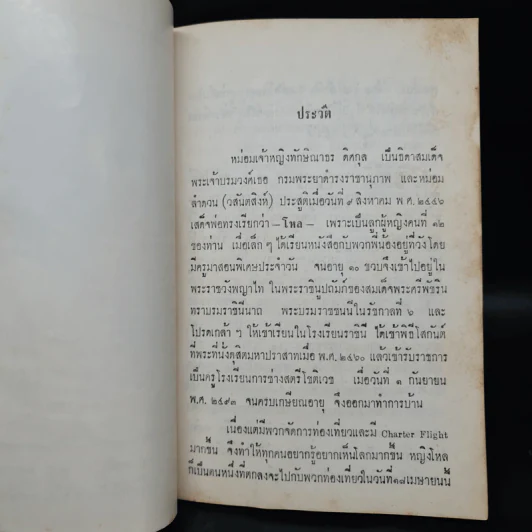 ประวัติ
หม่อมเจ้าหญิงทักษิณาธร ดิศกุล เป็นธิดาสมเด็จ
พระเจ้าบรมวงศ์เธอ กรมพระยาดำรงราชานุภาพ และหม่อม
ลำดวน (วสันตสิงห์) ประสูติเมื่อวันที่ ๙ สิงหาคม พ.ศ. ๒๔๔๖
เสด็จพ่อทรงเรียกว่า – โหล – เพราะเป็นลูกผู้หญิงคนที่ ๑๒
ของท่าน เมื่อเล็ก ๆ ได้เรียนหนังสือกับพวกพี่น้องอยู่ที่วังโดย
มีครูมาสอนพิเศษประจำวัน จนอายุ ๑๐ ขวบจึงเข้าไปอยู่ใน
พระราชวังพญาไท ในพระราชินูปถัมภ์ของสมเด็จพระศรีพัชริน
ทราบรมราชินีนาถ พระบรมราชชนนีในรัชกาลที่ ๖ และ
โปรดเกล้า ฯ ให้เข้าเรียนในโรงเรียนราชินี ได้เข้าพิธีโสกันต์
ที่พระที่นั่งดุสิตมหาปราสาทเมื่อ พ.ศ. ๒๔๖๐ แล้วเข้ารับราชการ
เป็นครูโรงเรียนการช่างสตรีโชติเวช เมื่อวันที่ ๑ กันยายน
พ.ศ. ๒๔๙๓ จนครบเกษียณอายุ จึงออกมาทำการบ้าน
เนื่องแต่มีพวกจัดการท่องเที่ยวและมี Charter Flight
มากขึ้น จึงทำให้ทุกคนอยากรู้อยากเห็นโลกมากขึ้น หญิงโหล
ก็เป็นคนหนึ่งที่ตกลงจะไปกับพวกท่องเที่ยวในวันที่ ๑๘ เมษายนนี้